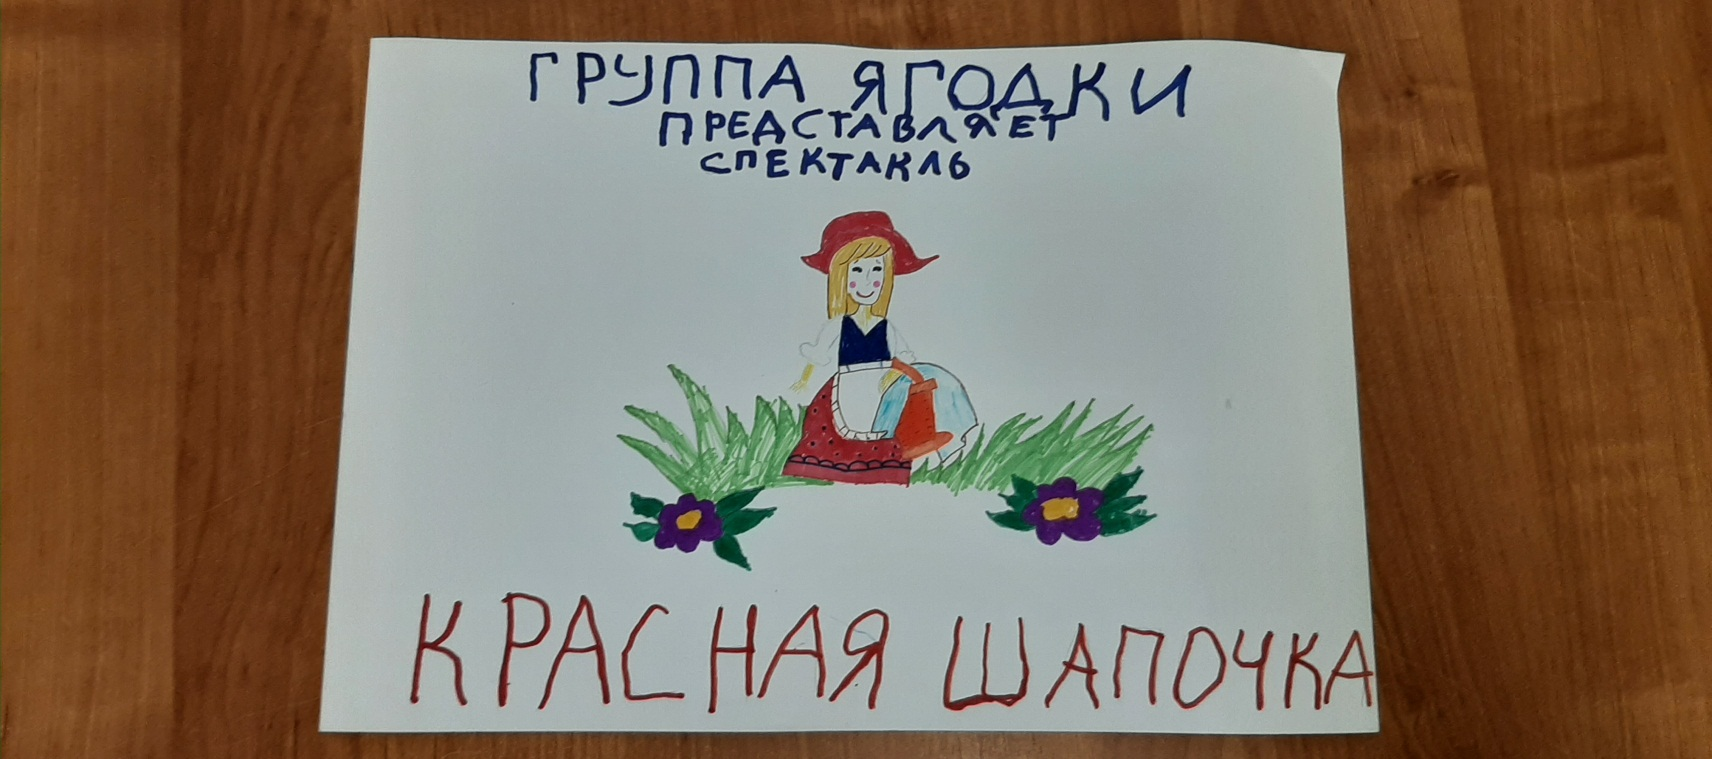 ГРУППА ЯГОДКИ
ПРЕДСТАВЛЯЕТ
СПЕКТАКЛЬ
КРАСНАЯ ШАПОЧКА